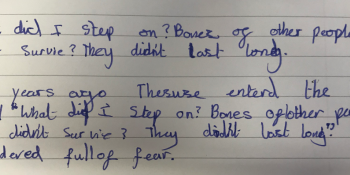 did I step on? Bones of other peopl
Survie? They didn't last long.
years ago Thesuse enterd the
"What did I step on? Bones of other pe
didn't Survie? They didn't last long?"
dered full of fear.